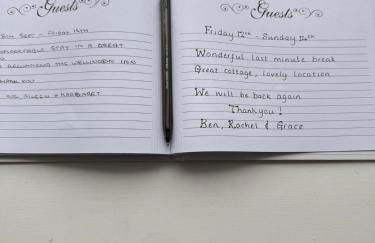 Guests
8th Sept - Friday 14th
Wonderful stay in a great
recommend the Wellington Inn
Thank you
Sue, Aileen & Margaret
Guests
Friday 12th - Sunday 14th
Wonderful last minute break
Great cottage, lovely location
We will be back again
Thankyou!
Ben, Rachel & Grace